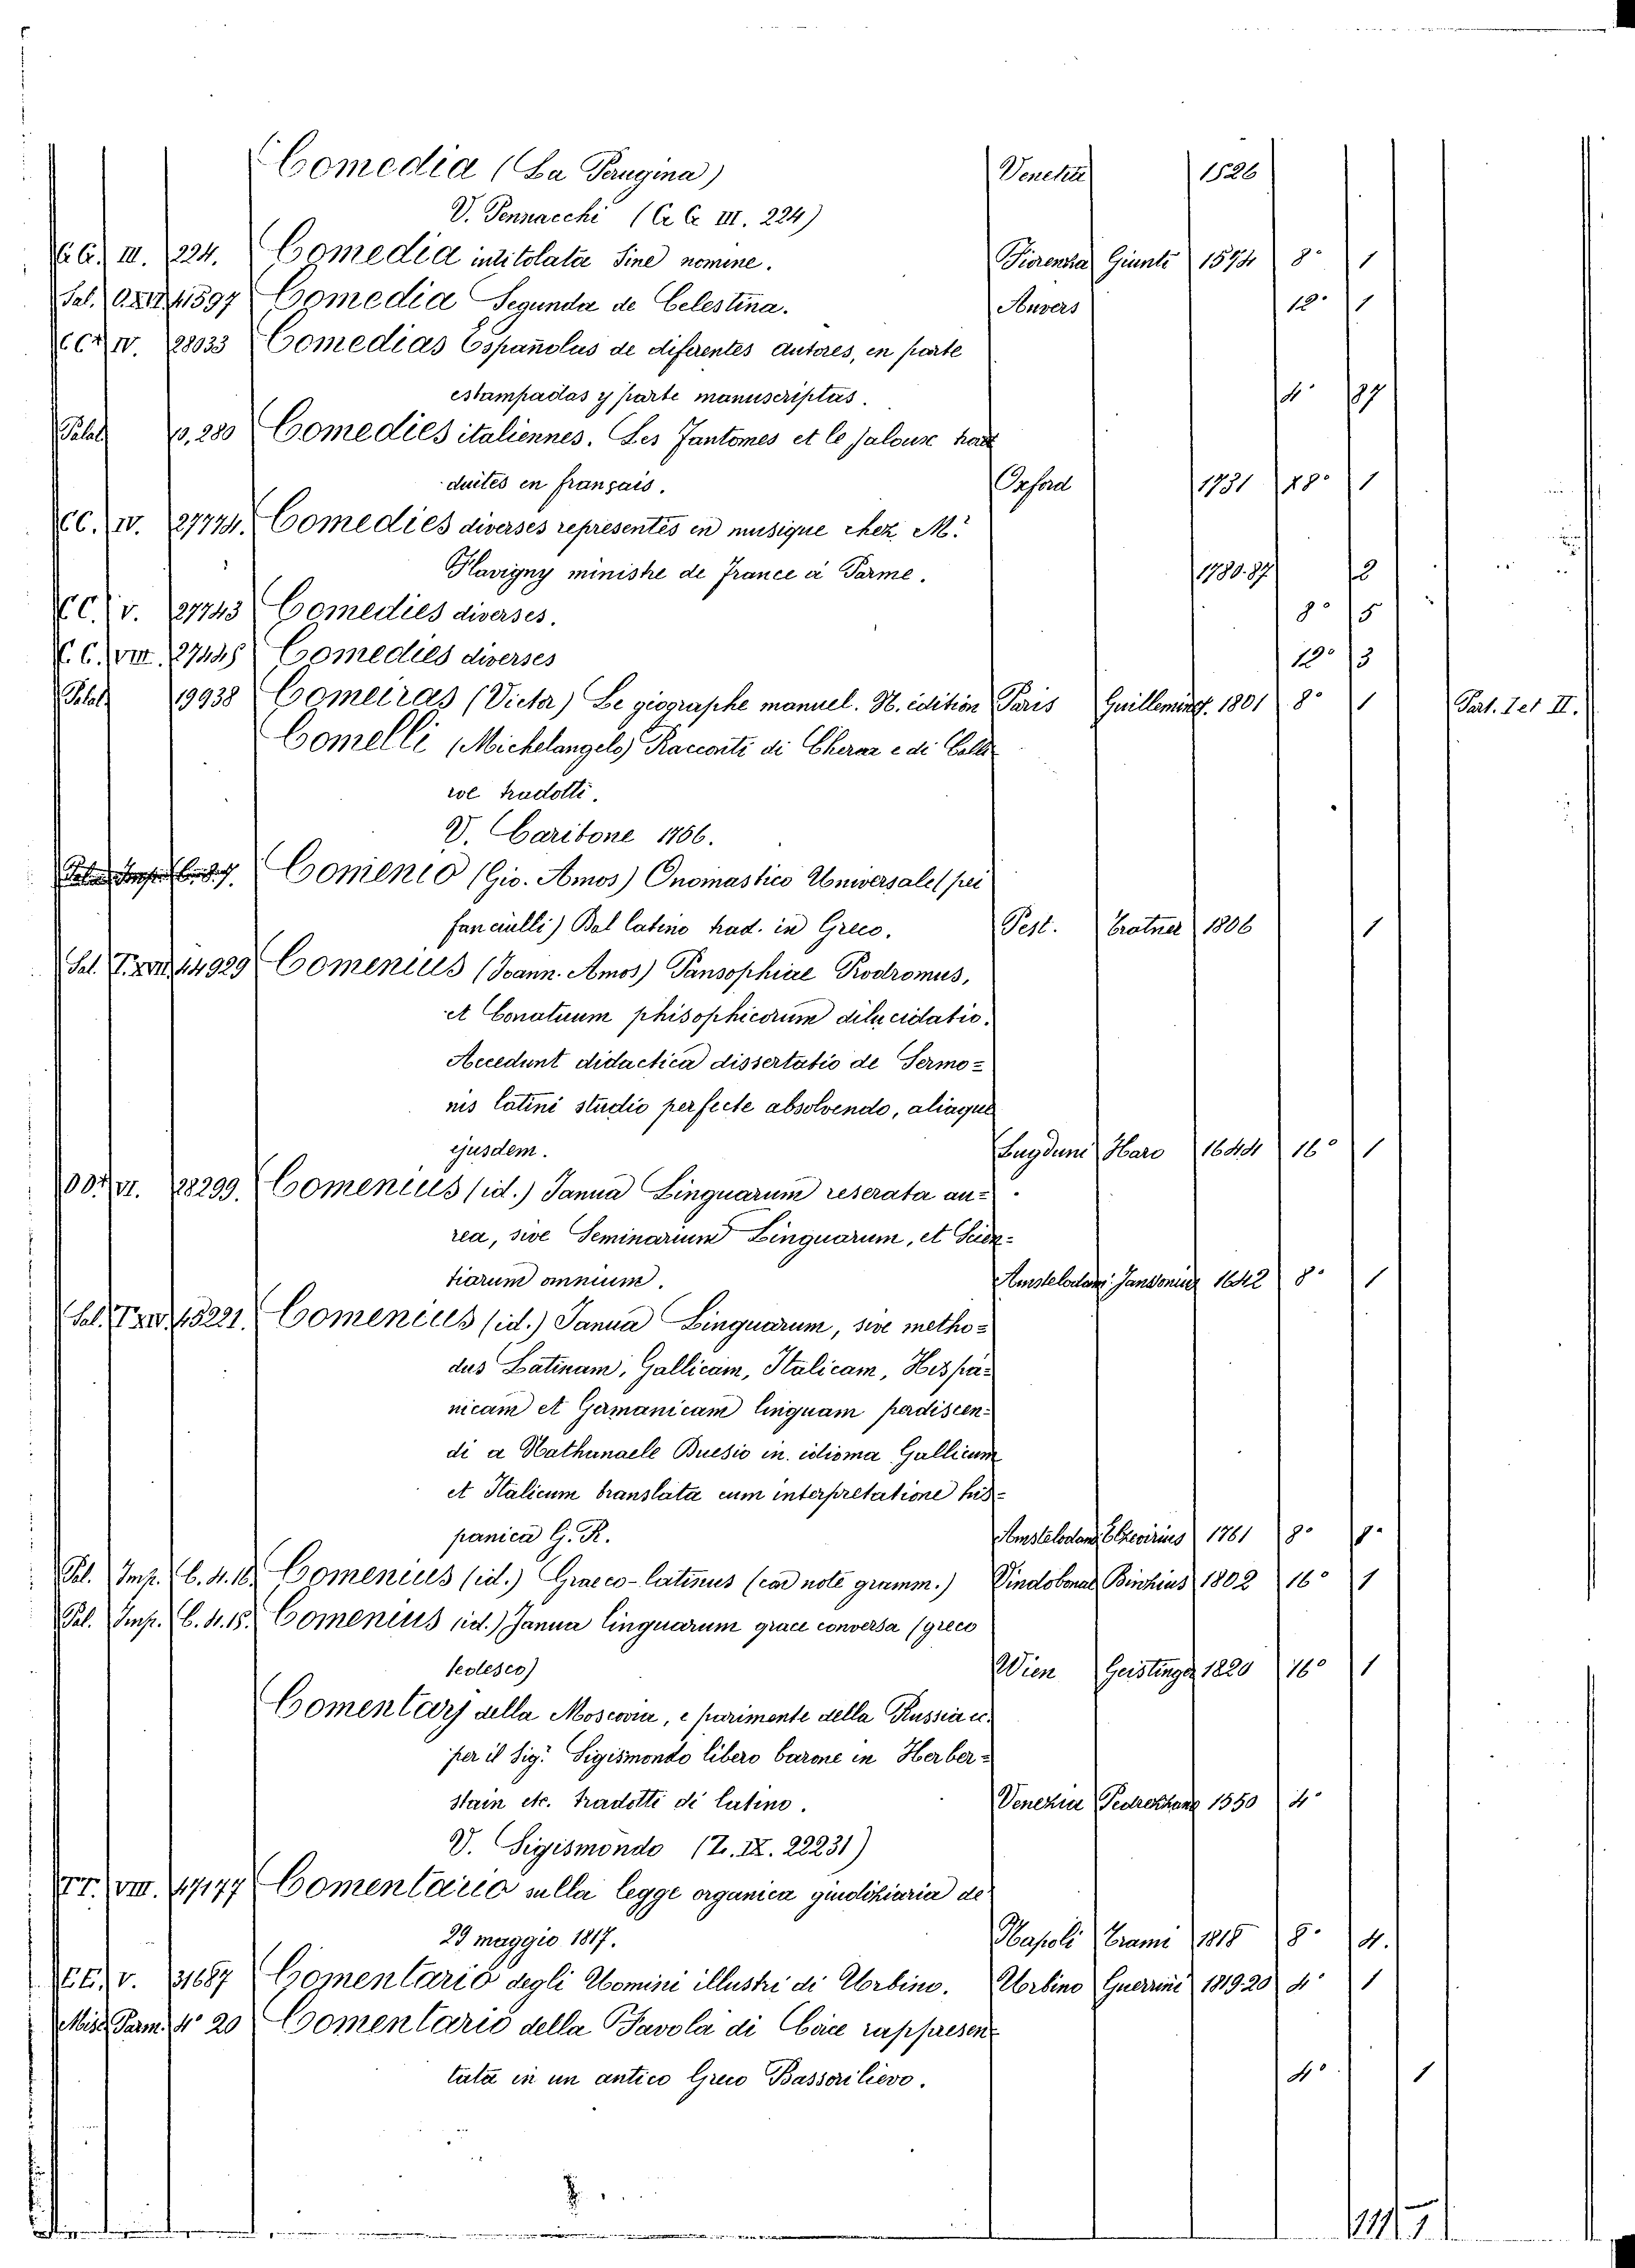 Comedia (La Perugina) Venetia 1526
V. Pennacchi (C. C. III. 224)
C. C. III. 224. Comedia intitolata Sine nomine. Fiorenza Giunti 1574 8° 1
Sal. 41597 Comedia Segunda de Celestina. Anvers 12° 1
CC* IV. 28033 Comedias Españolas de diferentes autores, en parte
estampadas y parte manuscriptas. 4° 87
Palat 10,280 Comedies italiennes. Les Fantomes et le Jaloux tra
duites en français. Oxford 1731 18° 1
CC. IV. 27774. Comedies diverses representés en musique chez Mr
Flavigny ministre de France a Parme. 1780.87 2
CC. V. 27743 Comedies diverses. 8° 5
C. C. VIII. 27448 Comedies diverses 12° 3
Palat 19938 Comeiras (Victor) Le geographe manuel. N. edition Paris Guilleminet. 1801 8° 1 Part. I et II.
Comelli (Michelangelo) Racconti di Cherea e di Calli
roe tradotti.
V. Caritone 1756.
Comenio (Gio. Amos) Onomastico Universale (pei
fanciulli) Dal latino trad. in Greco. Pest. Tratner 1806 1
Sal. T. XVII. 44929 Comenius (Joann. Amos) Pansophiae Prodromus,
et Conatuum phisophicorum dilucidatio.
Accedunt didactica dissertatio de Sermo=
nis latini studio perfecte absolvendo, aliaque
ejusdem. Lugduni Haro 1644 16° 1
VI. 28299. Comenius (id.) Janua Linguarum reserata au=
rea, sive Seminarium Linguarum, et Scien=
tiarum omnium. Amstelodami Jansonius 1642 8° 1
Sal. T. XV. 45221. Comenius (id.) Janua Linguarum, sive metho=
dus Latinam, Gallicam, Italicam, Hispa=
nicam et Germanicam linguam perdiscen=
di a Nathanaele Duesio in idioma Gallicum
et Italicum translata cum interpretatione his=
panica G. R. Amstelodami Elzevirius 1761 8° 1.
Pal. Imp. C. 4. 16. Comenius (id.) Graeco-latinus (cad note gramm.) Vindobonae Binzius 1802 16° 1
Pal. Imp. C. 4. 15. Comenius (id.) Janua linguarum grace conversa (greco
tedesco) Wien Geistinger 1820 16° 1
Comentarj della Moscovia, e parimente della Russia ec.
per il Sig.r Sigismondo libero barone in Herber=
stain etc. tradotti di latino. Venezia Pedrezzano 1550 4°
V. Sigismondo (Z. IX. 22231)
TT. VIII. 47177 Comentario sulla legge organica giudiziaria de
29 maggio 1817. Napoli Trami 1818 8° 4.
EE. V. 31687 Comentario degli Uomini illustri di Urbino. Urbino Guerrini 1819.20 4° 1
Miss. Parm. 4° 20 Comentario della Favola di Circe rappresen=
tata in un antico Greco Bassorilievo. 4° 1